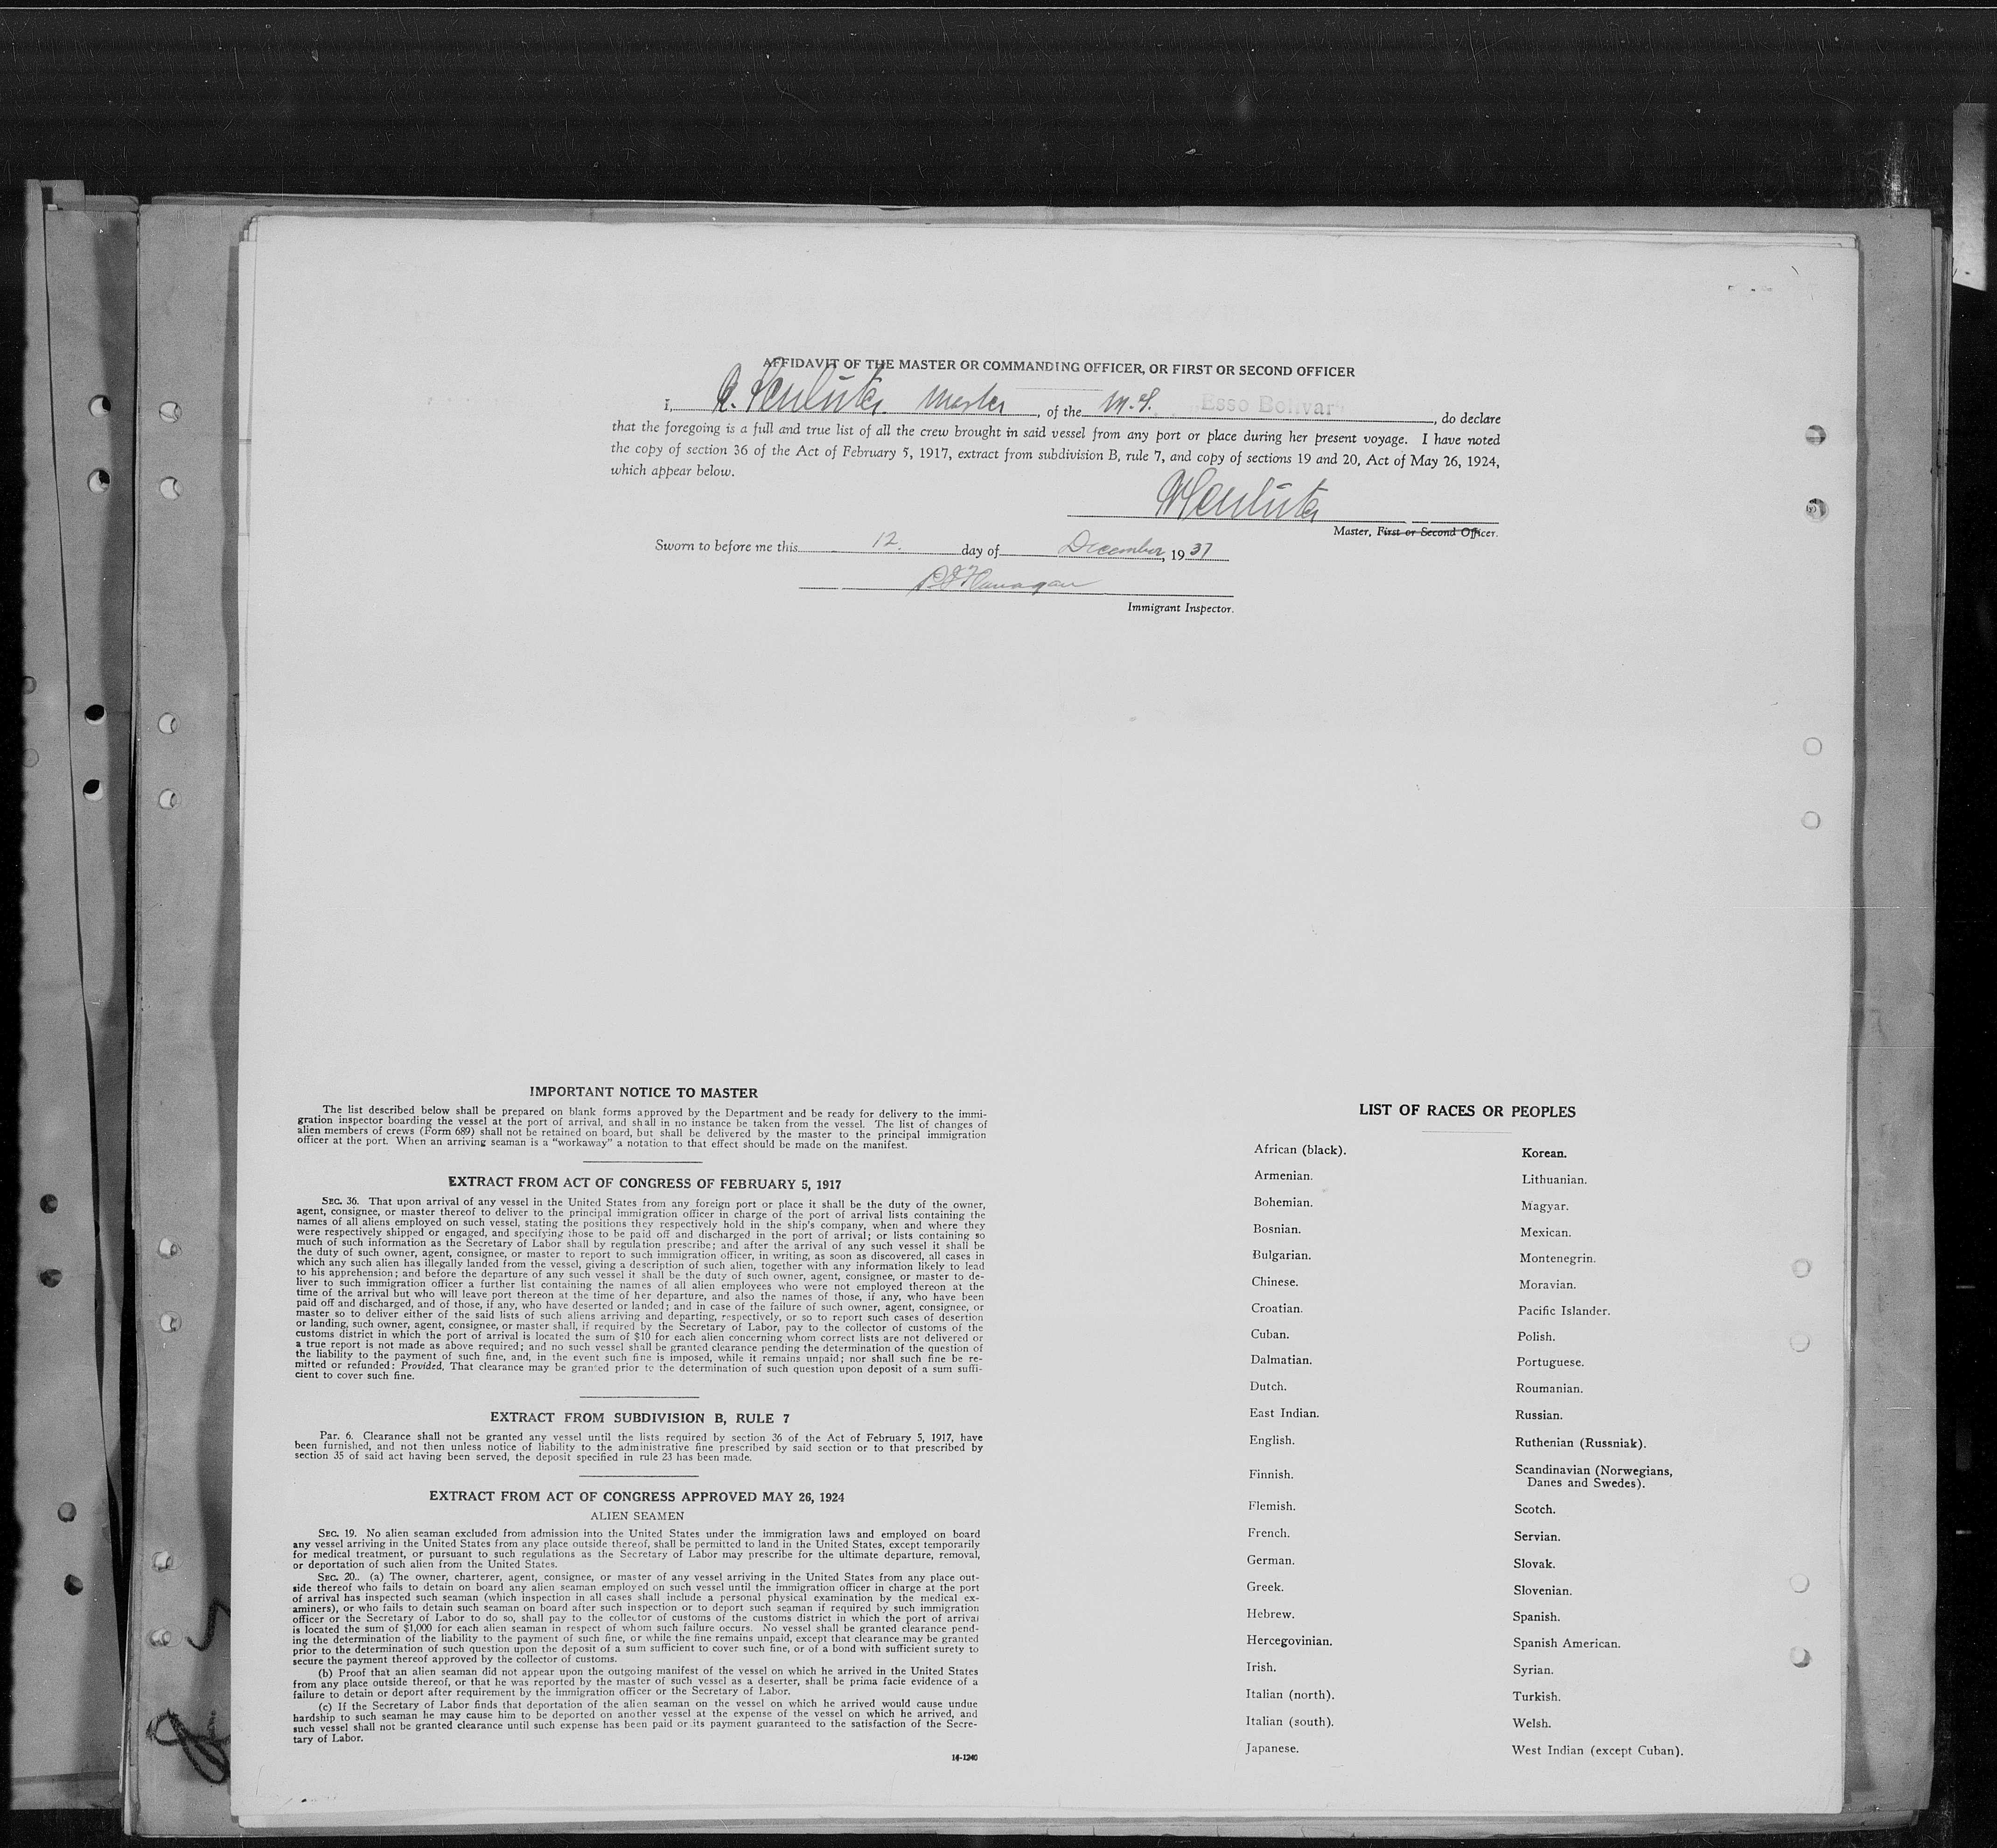 AFFIDAVIT OF THE MASTER OR COMMANDING OFFICER, OR FIRST OR SECOND OFFICER
I, Master, of the M.S. "Esso Bolivar", do declare
that the foregoing is a full and true list of all the crew brought in said vessel from any port or place during her present voyage. I have noted
the copy of section 36 of the Act of February 5, 1917, extract from subdivision B, rule 7, and copy of sections 19 and 20, Act of May 26, 1924,
which appear below.
Master, First or Second Officer.
Sworn to before me this 12. day of December, 1937
Immigrant Inspector.
IMPORTANT NOTICE TO MASTER
The list described below shall be prepared on blank forms approved by the Department and be ready for delivery to the immi-
gration inspector boarding the vessel at the port of arrival, and shall in no instance be taken from the vessel. The list of changes of
alien members of crews (Form 689) shall not be retained on board, but shall be delivered by the master to the principal immigration
officer at the port. When an arriving seaman is a "workaway" a notation to that effect should be made on the manifest.
EXTRACT FROM ACT OF CONGRESS OF FEBRUARY 5, 1917
SEC. 36. That upon arrival of any vessel in the United States from any foreign port or place it shall be the duty of the owner,
agent, consignee, or master thereof to deliver to the principal immigration officer in charge of the port of arrival lists containing the
names of all aliens employed on such vessel, stating the positions they respectively hold in the ship's company, when and where they
were respectively shipped or engaged, and specifying those to be paid off and discharged in the port of arrival; or lists containing so
much of such information as the Secretary of Labor shall by regulation prescribe; and after the arrival of any such vessel it shall be
the duty of such owner, agent, consignee, or master to report to such immigration officer, in writing, as soon as discovered, all cases in
which any such alien has illegally landed from the vessel, giving a description of such alien, together with any information likely to lead
to his apprehension; and before the departure of any such vessel it shall be the duty of such owner, agent, consignee, or master to de-
liver to such immigration officer a further list containing the names of all alien employees who were not employed thereon at the
time of the arrival but who will leave port thereon at the time of her departure, and also the names of those, if any, who have been
paid off and discharged, and of those, if any, who have deserted or landed; and in case of the failure of such owner, agent, consignee, or
master so to deliver either of the said lists of such aliens arriving and departing, respectively, or so to report such cases of desertion
or landing, such owner, agent, consignee, or master shall, if required by the Secretary of Labor, pay to the collector of customs of the
customs district in which the port of arrival is located the sum of $10 for each alien concerning whom correct lists are not delivered or
a true report is not made as above required; and no such vessel shall be granted clearance pending the determination of the question of
the liability to the payment of such fine, and, in the event such fine is imposed, while it remains unpaid; nor shall such fine be re-
mitted or refunded: Provided, That clearance may be granted prior to the determination of such question upon deposit of a sum suffi-
cient to cover such fine.
EXTRACT FROM SUBDIVISION B, RULE 7
Par. 6. Clearance shall not be granted any vessel until the lists required by section 36 of the Act of February 5, 1917, have
been furnished, and not then unless notice of liability to the administrative fine prescribed by said section or to that prescribed by
section 35 of said act having been served, the deposit specified in rule 23 has been made.
EXTRACT FROM ACT OF CONGRESS APPROVED MAY 26, 1924
ALIEN SEAMEN
SEC. 19. No alien seaman excluded from admission into the United States under the immigration laws and employed on board
any vessel arriving in the United States from any place outside thereof, shall be permitted to land in the United States, except temporarily
for medical treatment, or pursuant to such regulations as the Secretary of Labor may prescribe for the ultimate departure, removal,
or deportation of such alien from the United States.
SEC. 20. (a) The owner, charterer, agent, consignee, or master of any vessel arriving in the United States from any place out-
side thereof who fails to detain on board any alien seaman employed on such vessel until the immigration officer in charge at the port
of arrival has inspected such seaman (which inspection in all cases shall include a personal physical examination by the medical ex-
aminers), or who fails to detain such seaman on board after such inspection or to deport such seaman if required by such immigration
officer or the Secretary of Labor to do so, shall pay to the collector of customs of the customs district in which the port of arrival
is located the sum of $1,000 for each alien seaman in respect of whom such failure occurs. No vessel shall be granted clearance pend-
ing the determination of the liability to the payment of such fine, or while the fine remains unpaid, except that clearance may be granted
prior to the determination of such question upon the deposit of a sum sufficient to cover such fine, or of a bond with sufficient surety to
secure the payment thereof approved by the collector of customs.
(b) Proof that an alien seaman did not appear upon the outgoing manifest of the vessel on which he arrived in the United States
from any place outside thereof, or that he was reported by the master of such vessel as a deserter, shall be prima facie evidence of a
failure to detain or deport after requirement by the immigration officer or the Secretary of Labor.
(c) If the Secretary of Labor finds that deportation of the alien seaman on the vessel on which he arrived would cause undue
hardship to such seaman he may cause him to be deported on another vessel at the expense of the vessel on which he arrived, and
such vessel shall not be granted clearance until such expense has been paid or its payment guaranteed to the satisfaction of the Secre-
tary of Labor.
14-1240
LIST OF RACES OR PEOPLES
African (black).
Armenian.
Bohemian.
Bosnian.
Bulgarian.
Chinese.
Croatian.
Cuban.
Dalmatian.
Dutch.
East Indian.
English.
Finnish.
Flemish.
French.
German.
Greek.
Hebrew.
Hercegovinian.
Irish.
Italian (north).
Italian (south).
Japanese.
Korean.
Lithuanian.
Magyar.
Mexican.
Montenegrin.
Moravian.
Pacific Islander.
Polish.
Portuguese.
Roumanian.
Russian.
Ruthenian (Russniak).
Scandinavian (Norwegians,
Danes and Swedes).
Scotch.
Servian.
Slovak.
Slovenian.
Spanish.
Spanish American.
Syrian.
Turkish.
Welsh.
West Indian (except Cuban).